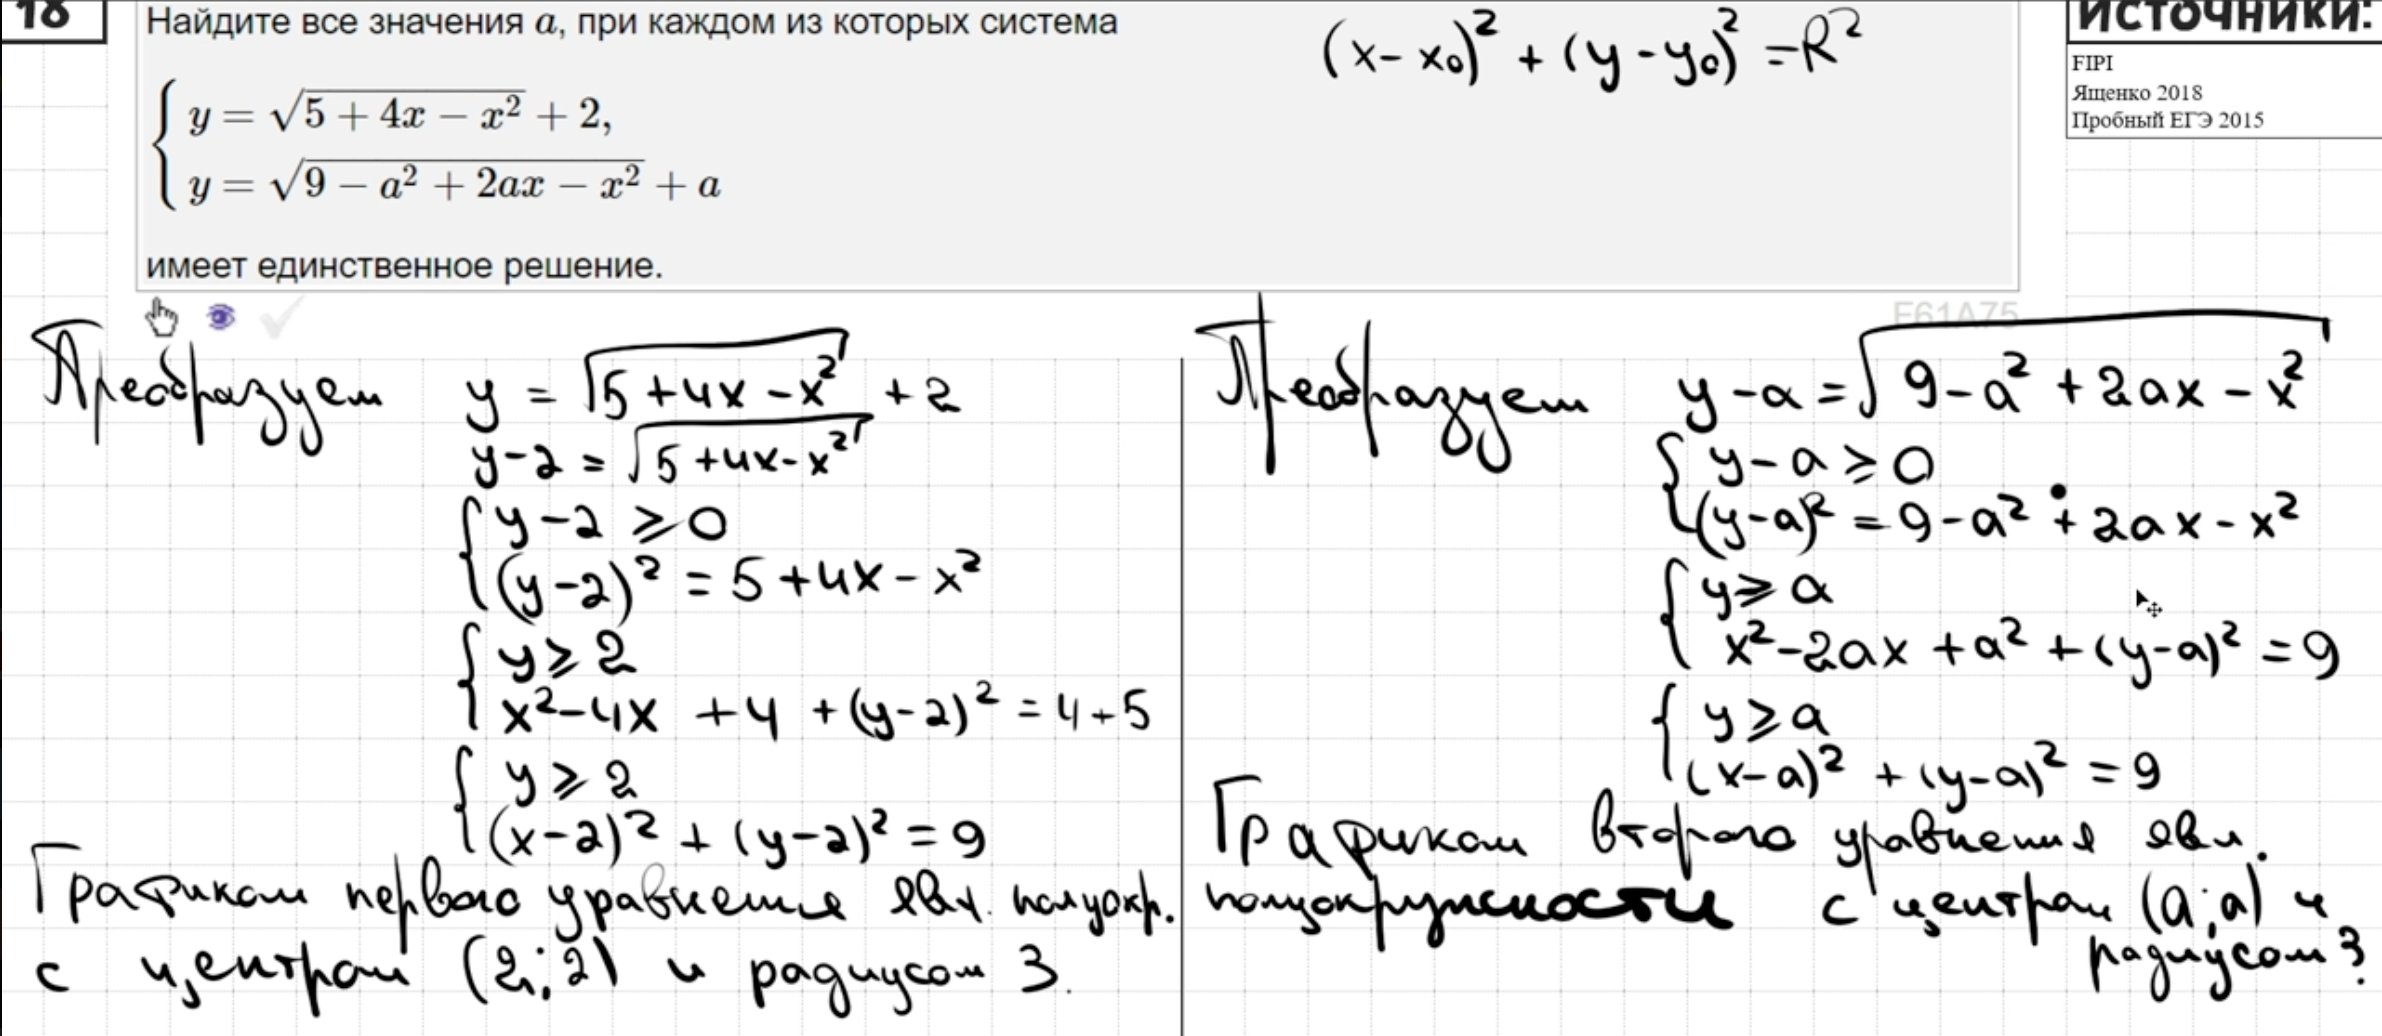 18
Найдите все значения a, при каждом из которых система
y = √(5 + 4x − x²) + 2,
y = √(9 − a² + 2ax − x²) + a
имеет единственное решение.
(x - x₀)² + (y - y₀)² = R²
ИСТОЧНИКИ:
FIPI
Ященко 2018
Пробный ЕГЭ 2015
F61A75
Преобразуем y = √(5 + 4x - x²) + 2
y - 2 = √(5 + 4x - x²)
{ y - 2 ⩾ 0
(y - 2)² = 5 + 4x - x²
{ y ⩾ 2
x² - 4x + 4 + (y - 2)² = 4 + 5
{ y ⩾ 2
(x - 2)² + (y - 2)² = 9
Графиком первого уравнения явл. полуокр.
с центром (2; 2) и радиусом 3.
Преобразуем y - a = √(9 - a² + 2ax - x²)
{ y - a ⩾ 0
(y - a)² = 9 - a² + 2ax - x²
{ y ⩾ a
x² - 2ax + a² + (y - a)² = 9
{ y ⩾ a
(x - a)² + (y - a)² = 9
Графиком второго уравнения явл.
полуокружности с центром (a; a) и
радиусом 3.